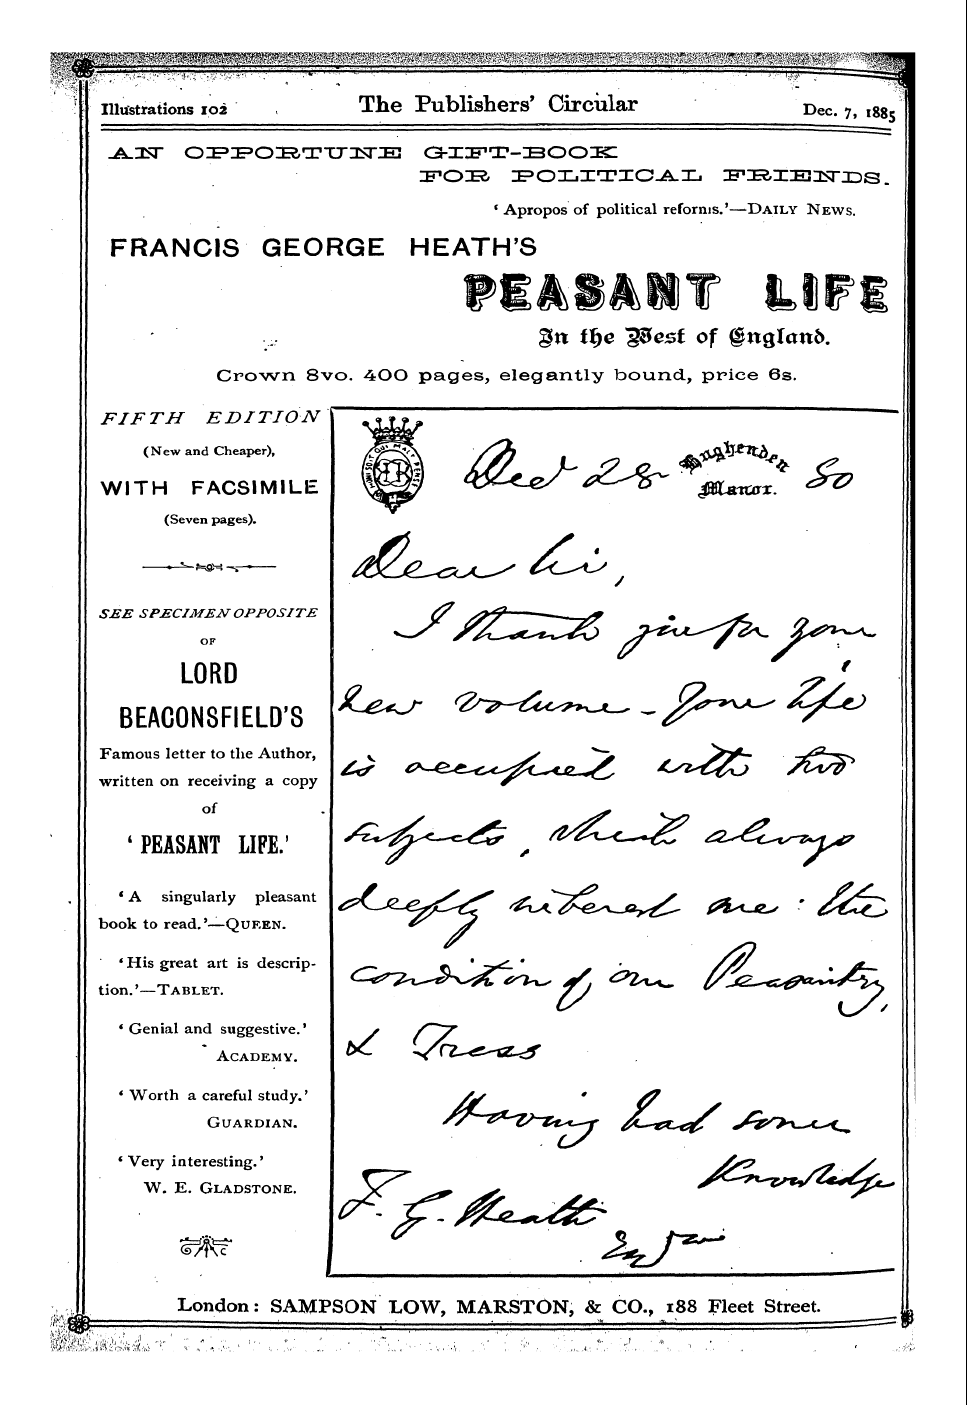 Illustrations 102 The Publishers' Circular Dec. 7, 1885
AN OPPORTUNE GIFT-BOOK
FOR POLITICAL FRIENDS.
'Apropos of political reforms.'—DAILY NEWS.
FRANCIS GEORGE HEATH'S
PEASANT LIFE
In the West of England.
Crown 8vo. 400 pages, elegantly bound, price 6s.
FIFTH EDITION
(New and Cheaper),
WITH FACSIMILE
(Seven pages).
SEE SPECIMEN OPPOSITE
OF
LORD
BEACONSFIELD'S
Famous letter to the Author,
written on receiving a copy
of
'PEASANT LIFE.'
'A singularly pleasant
book to read.'—QUEEN.
'His great art is descrip-
tion.'—TABLET.
'Genial and suggestive.'
ACADEMY.
'Worth a careful study.'
GUARDIAN.
'Very interesting.'
W. E. GLADSTONE.
HONI SOIT QUI MAL Y PENSE
Dec 28 Hughenden Manor. 80
Dear Sir,
I thank you for your
new volume - Your life
is occupied with two
subjects, which always
deeply interest me: the
condition of our Peasantry,
& Trees
Having had some
Knowledge
F. G. Heath
Esqre
London: SAMPSON LOW, MARSTON, & CO., 188 Fleet Street.